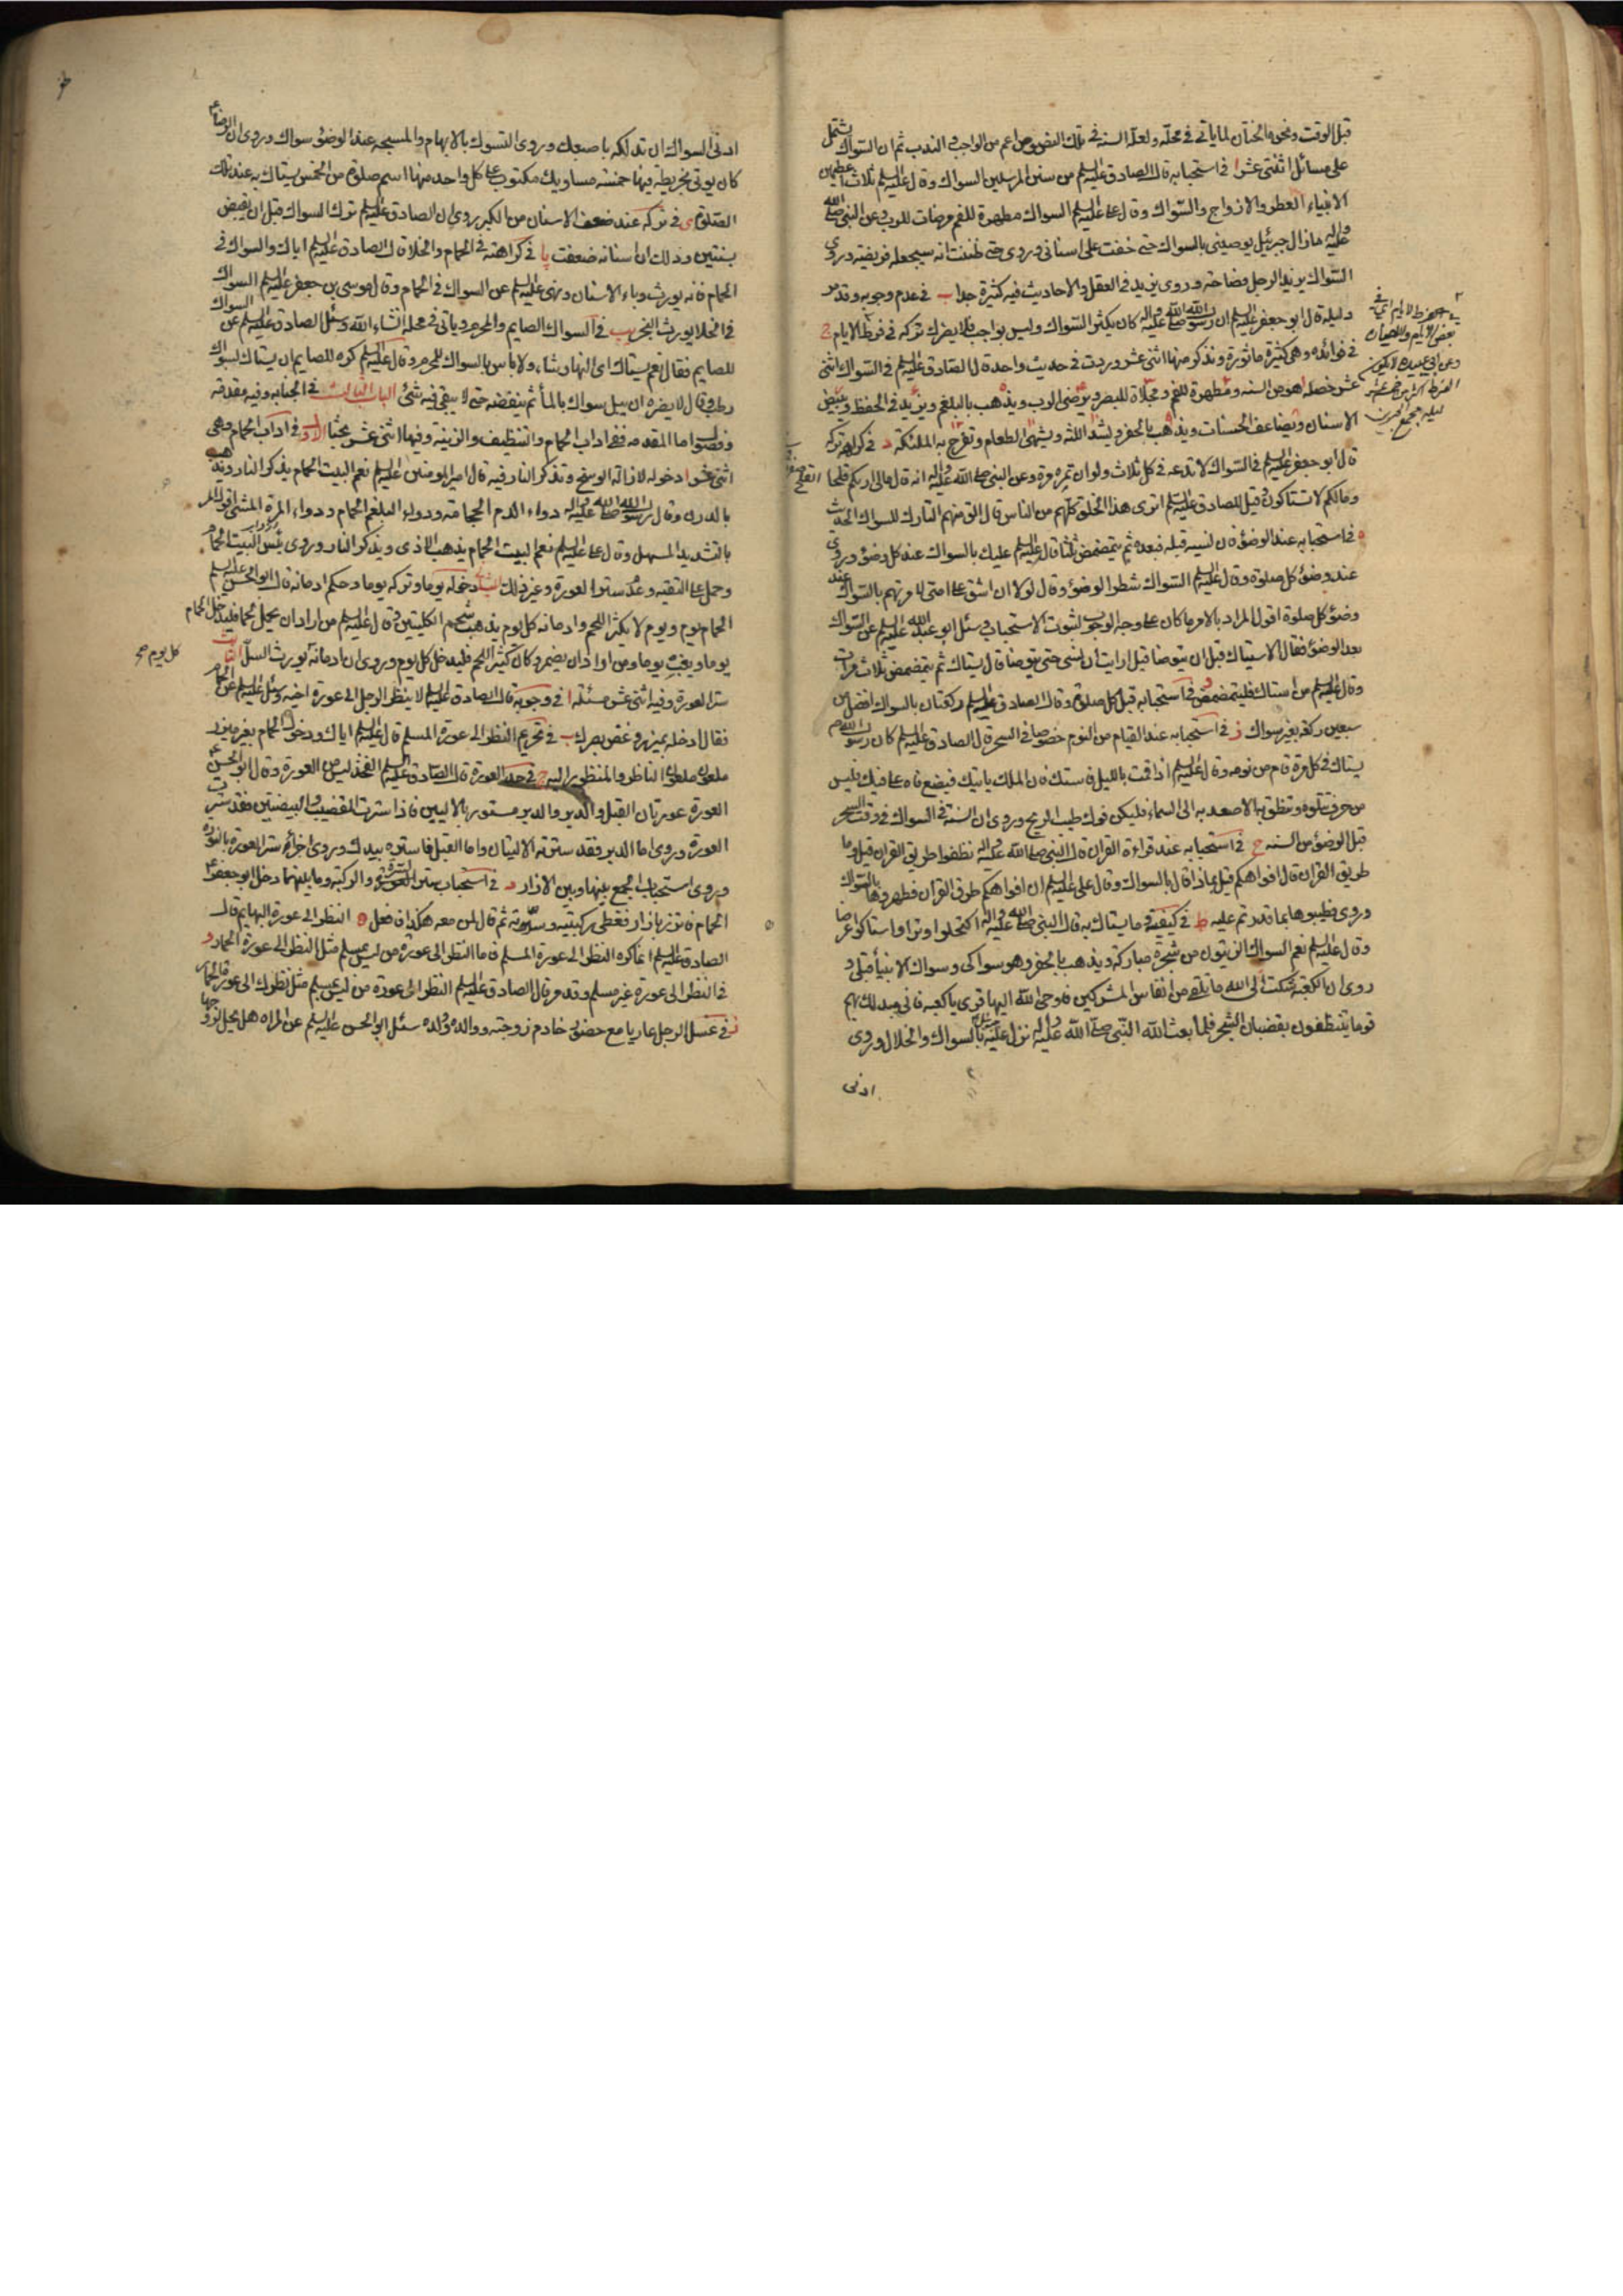 قبل الوقت ونحوه الختان لما ياتى فى محله ولعل السنة فى تلك النصوص اعم من الواجب والندب ثم ان السواك يشتمل
على مسائل اثنتى عشر ا فى استحبابه قال الصادق عليه السلم من سنن المرسلين السواك وقال عليه السلم ثلاث اعطيهن
الانبياء العطر والازواج والسواك وقال على عليه السلم السواك مطهرة للفم مرضات للرب وعن النبى صلى الله
عليه واله مازال جبرئيل يوصينى بالسواك حتى خفت على اسنانى وروى حتى ظننت انه سيجعله فريضة وروى
السواك يزيد الرجل فصاحة وروى يزيد فى العقل والاحاديث فيه كثيرة جدا ب فى عدم وجوبه وقد مر
دليله قال ابو جعفر عليه السلم ان رسول الله صلى الله عليه واله كان يكثر السواك وليس بواجب فلا يضرك تركه فى فرط الايام ج
فى فوائده وهى كثيرة ماثورة ونذكر منها اثنى عشر وردت فى حديث واحد قال الصادق عليه السلم فى السواك اثنى
عشر خصله هو من السنه ومطهرة للفم ومجلاة للبصر ويرضى الرب ويذهب بالبلغم ويزيد فى الحفظ ويبيض
الاسنان ويضاعف الحسنات ويذهب بالحفر ويشد اللثه ويشهى الطعام وتفرح به الملئكة د فى كراهة تركه
قال ابو جعفر عليه السلم فى السواك لا تدعه فى كل ثلاث ولو ان تمره مرة وعن النبى صلى الله عليه واله انه قال مالى اريكم قلحا
ومالكم لا تستاكون وقيل للصادق عليه السلم اترى هذا الخلق كلهم من الناس قال الق منهم التارك للسواك الحديث
ه فى استحبابه عند الوضوء فان نسيه قبله فبعده ثم يتمضمض ثلثا قال عليه السلم عليك بالسواك عند كل وضوء وروى
عند وضوء كل صلوة وقال عليه السلم السواك شطر الوضوء وقال لولا ان اشق على امتى لامرتهم بالسواك عند
وضوء كل صلوة اقول المراد بالامر ما كان على وجه الوجوب لثبوت الاستحباب وسئل ابو عبد الله عليه السلم عن السواك
بعد الوضوء فقال الاستياك قبل ان يتوضا قيل ارايت ان نسى حتى يتوضا قال يستاك ثم يتمضمض ثلاث مرات
وقال عليه السلم من استاك فليتمضمض و فى استحبابه قبل كل صلوة وقال الصادق عليه السلم ركعتان بالسواك افضل من
سبعين ركعة بغير سواك ز فى استحبابه عند القيام من النوم خصوصا فى السحر قال الصادق عليه السلم كان رسول الله
يستاك فى كل مرة قام من نومه وقال عليه السلم اذا قمت بالليل فاستك فان الملك ياتيك فيضع فاه على فيك فليس
من حرف تتلوه وتنطق به الا صعد به الى السماء فليكن فوك طيب الريح وروى ان السنة فى السواك فى وقت السحر
قبل الوضوء من السنه ح فى استحبابه عند قراءة القران قال النبى صلى الله عليه واله نظفوا طريق القران قيل وما
طريق القران قال افواهكم قيل بماذا قال بالسواك وقال على عليه السلم ان افواهكم طرق القران فطهروها بالسواك
وروى فطيبوها بما قدرتم عليه ط فى كيفيته وما يستاك به قال النبى صلى الله عليه واله اكتحلوا وترا واستاكوا عرضا
وقال عليه السلم نعم السواك الزيتون من شجرة مباركة ويذهب بالحفر وهو سواكى وسواك الانبياء قبلى و
روى ان الكعبة شكت الى الله ما تلقى من انفاس المشركين فاوحى الله اليها قرى يا كعبة فانى مبدلك بهم
قوما يتنظفون بقضبان الشجر فلما بعث الله النبى صلى الله عليه واله نزل عليه بالسواك والخلال وروى
ادنى
ادنى السواك ان تدلكه باصبعك وروى التسوك بالابهام والمسبحه عند الوضوء سواك وروى ان الرضا
كان يوتى بخريطة فيها خمسة مساويك مكتوب على كل واحد منها اسم صلوة من الخمس يستاك به عند تلك
الصلوة ى فى تركه عند ضعف الاسنان من الكبر روى ان الصادق عليه السلم ترك السواك قبل ان يقبض
بسنتين وذلك ان اسنانه ضعفت يا فى كراهته فى الحمام والخلا قال الصادق عليه السلم اياك والسواك فى
الحمام فانه يورث وباء الاسنان ونهى عليه السلم عن السواك فى الحمام وقال موسى بن جعفر عليه السلم السواك
فى الخلا يورث البخر يب فى السواك للصايم والمحرم وياتى فى محله انشاء الله وسئل الصادق عليه السلم عن السواك
للصايم فقال نعم يستاك اى النهار شاء ولا باس بالسواك للمحرم وقال عليه السلم كره للصايم ان يستاك بسواك
رطب وقال لا يضره ان يبل سواك بالماء ثم ينفضه حتى لا يبقى فيه شئ الباب الثالث فى الجنابه وفيه مقدمة
وفصول اما المقدمه ففى اداب الحمام والتنظيف والزينة وفيها اثنى عشر بحثا الاول فى اداب الحمام وهى
اثنى عشر ا دخوله لازالة الوسخ وتذكر النار فيه قال امير المومنين عليه السلم نعم البيت الحمام يذكر النار ويذهب
بالدرن وقال رسول الله صلى الله عليه واله دواء الدم الحجامة ودواء البلغم الحمام ودواء المرة المشى اقول المشى
بالتشديد المسهل وقال على عليه السلم نعم البيت الحمام يذهب الاذى ويذكر النار وروى بئس البيت الحمام
وحمل على التقيه وعدم ستر العورة وغير ذلك الثانى دخوله يوما وتركه يوما وحكم ادمانه قال ابو الحسن عليه السلم
الحمام يوم ويوم لا يكثر اللحم وادمانه كل يوم يذهب شحم الكليتين وقال عليه السلم من اراد ان يحمل لحما فليدخل الحمام
يوما ويغب يوما ومن اراد ان يضمر وكان كثير اللحم فليدخل كل يوم وروى ان ادمانه يورث السل الثالث
ستر العورة وفيه اثنى عشر مسئلة ا فى وجوبه قال الصادق عليه السلم لا ينظر الرجل الى عورة اخيه وسئل عليه السلم عن الحمام
فقال ادخله بميزر وغض بصرك ب فى تحريم النظر الى عورة المسلم قال عليه السلم اياك ودخول الحمام بغير ميزر
ملعون ملعون الناظر والمنظور اليه ج فى حد العورة قال الصادق عليه السلم الفخذ ليس من العورة وقال ابو الحسن
العورة عورتان القبل والدبر والدبر مستور بالاليين فاذا سترت القضيب والبيضتين فقد سترت
العورة وروى اما الدبر فقد سترته الاليتان واما القبل فاستره بيدك وروى اجزاء ستر العورة بالنورة
وروى استحباب الجمع بينها وبين الازار د فى استحباب ستر السرة والركبة وما بينهما دخل ابو جعفر
الحمام فاتزر بازار فغطى ركبتيه وسرته ثم قال لمن معه هكذا فافعل ه النظر الى عورة البهايم قال
الصادق عليه السلم انما كره النظر الى عورة المسلم فاما النظر الى عورة من ليس بمسلم مثل النظر الى عورة الحمار و
فى النظر الى عورة غير مسلم وقد مر قال الصادق عليه السلم النظر الى عورة من ليس بمسلم مثل نظرك الى عورة الحمار
ز فى غسل الرجل عاريا مع حضور خادم زوجته ووالده وولده سئل ابو الحسن عليه السلم عن المراه هل يحل لزوجها
كل يوم صح